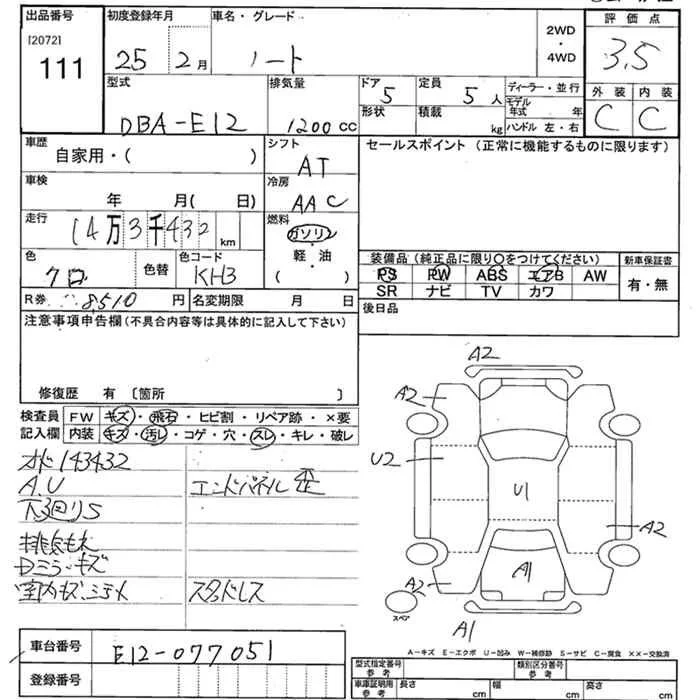 出品番号
[2072]
111
初度登録年月
25 2月
車名・グレード
ノート
2WD
・
4WD
評価点
3.5
外装 内装
C C
型式
DBA-E12
排気量
1200 cc
ドア 5
形状
定員 5 人
積載 kg
ディーラー・並行
モデル年式 年
ハンドル 左・右
車歴
自家用・( )
シフト
AT
セールスポイント (正常に機能するものに限ります)
車検
年 月( 日)
冷房
AAC
走行
14万3千432 km
燃料
ガソリン
・
軽・油
( )
色
クロ
色替
色コード
KH3
装備品(純正品に限り〇をつけてください)
PS PW ABS エアB AW
SR ナビ TV カワ
新車保証書
有・無
R券 8,510 円
名変期限 月 日
後日品
注意事項申告欄(不具合内容等は具体的に記入して下さい)
修復歴 有 〔箇所 〕
検査員
記入欄
FW キズ・飛石・ヒビ割・リペア跡・×要
内装 キズ・汚レ・コゲ・穴・スレ・キレ・破レ
オド143432
A.U
エンドパネル歪
下廻りS
Dミラーキズ
スタッドレス
A2
A2
U2
U1
A2
A1
A2
A1
スペア
A-キズ E-エクボ U-凹み W-補修跡 S-サビ C-腐食 XX-交換済
車台番号
E12-077051
登録番号
型式指定番号
参考
類別区分番号
参考
車庫証明用
参考
長さ cm
幅 cm
高さ cm